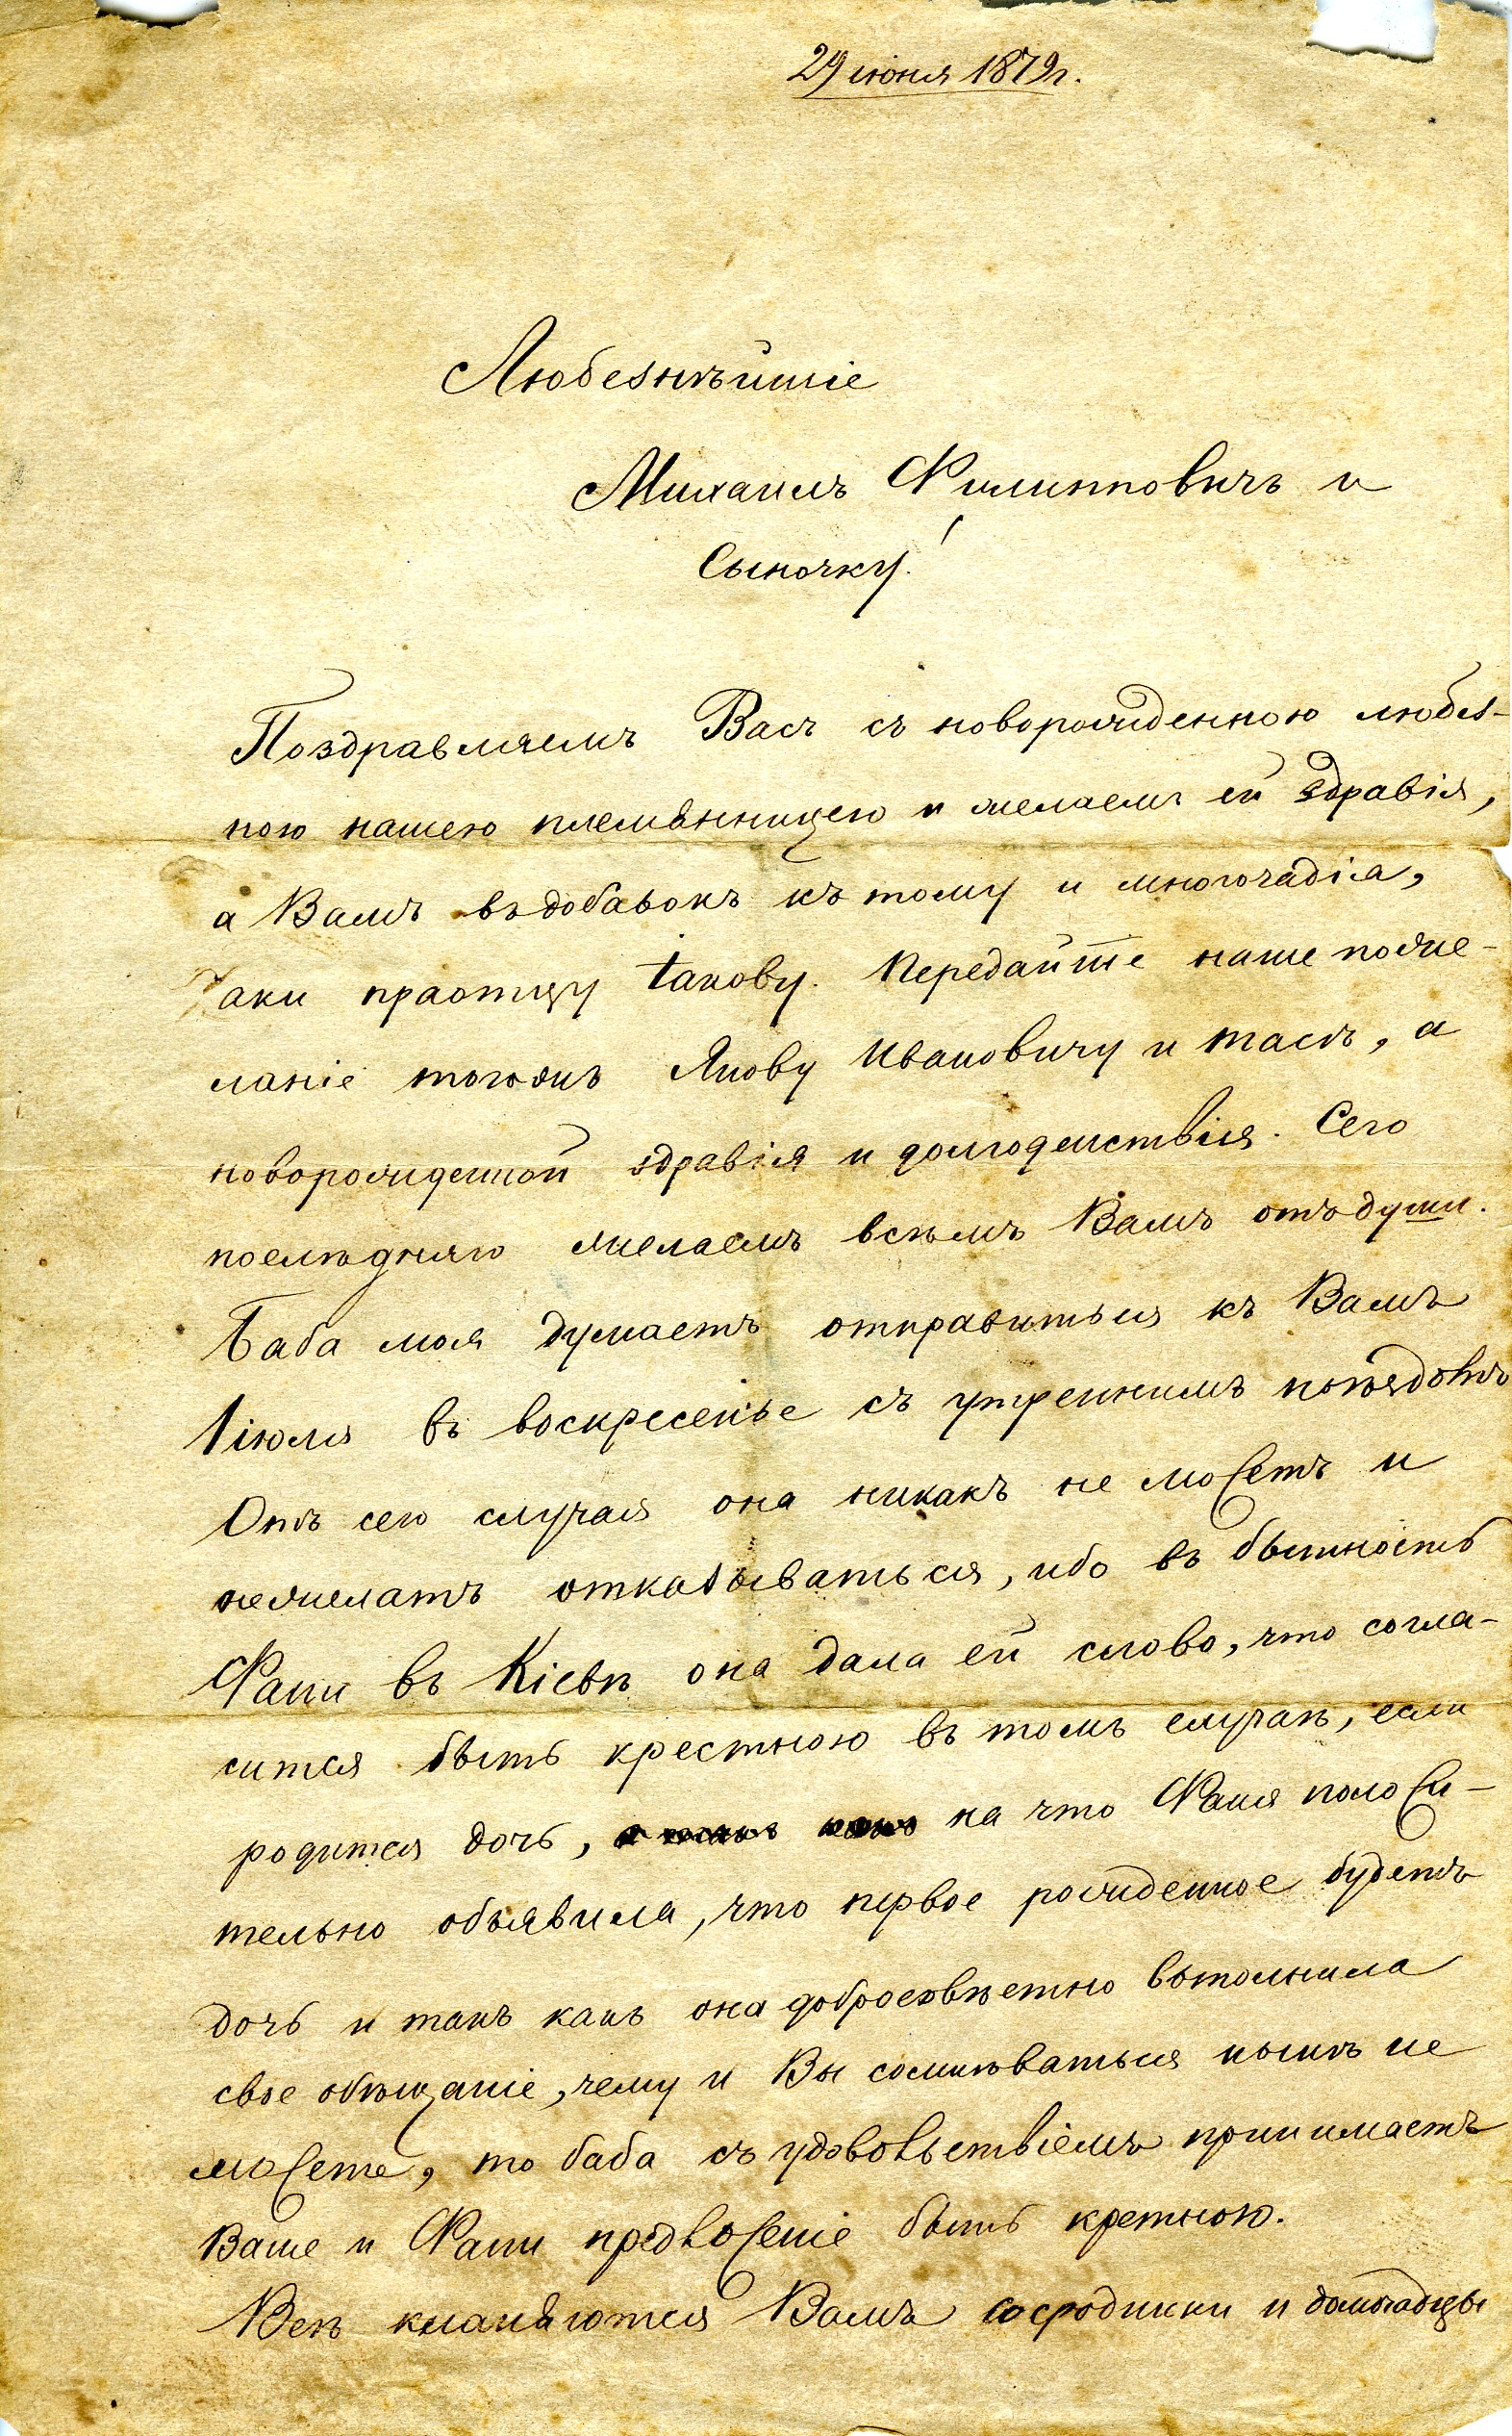 29 июня 1879 г.
Любезнѣйшіе
Михаилъ Филипповичъ и
Сыночку!
Поздравляемъ Васъ съ новорожденною любез-
ною нашею племянницею и желаемъ ей здравія,
а Вамъ въ добавокъ къ тому и многочадія,
аки праотцу Іакову. Передайте наше поже-
ланіе тогожъ Якову Ивановичу и Тасѣ, а
новорожденной здравія и долгоденствія. Сего
послѣдняго желаемъ всѣмъ Вамъ отъ души.
Баба моя думаетъ отправиться къ Вамъ
1 іюля въ воскресенье съ утреннимъ поѣздомъ
Отъ сего случая она никакъ не можетъ и
нежелатъ отказываться, ибо въ бытность
Фани въ Кіевѣ она дала ей слово, что согла-
сится быть крестною въ томъ случаѣ, если
родится дочь, на что Фаня положи-
тельно объявила, что первое рожденное будетъ
дочь и такъ какъ она добросовѣстно выполнила
свое обѣщаніе, чему и Вы сомнѣваться нынѣ не
можете, то баба съ удовольствіемъ принимаетъ
Ваше и Фани предложеніе быть кретною.
Всѣ кланяются Вамъ сосродники и домочадцы